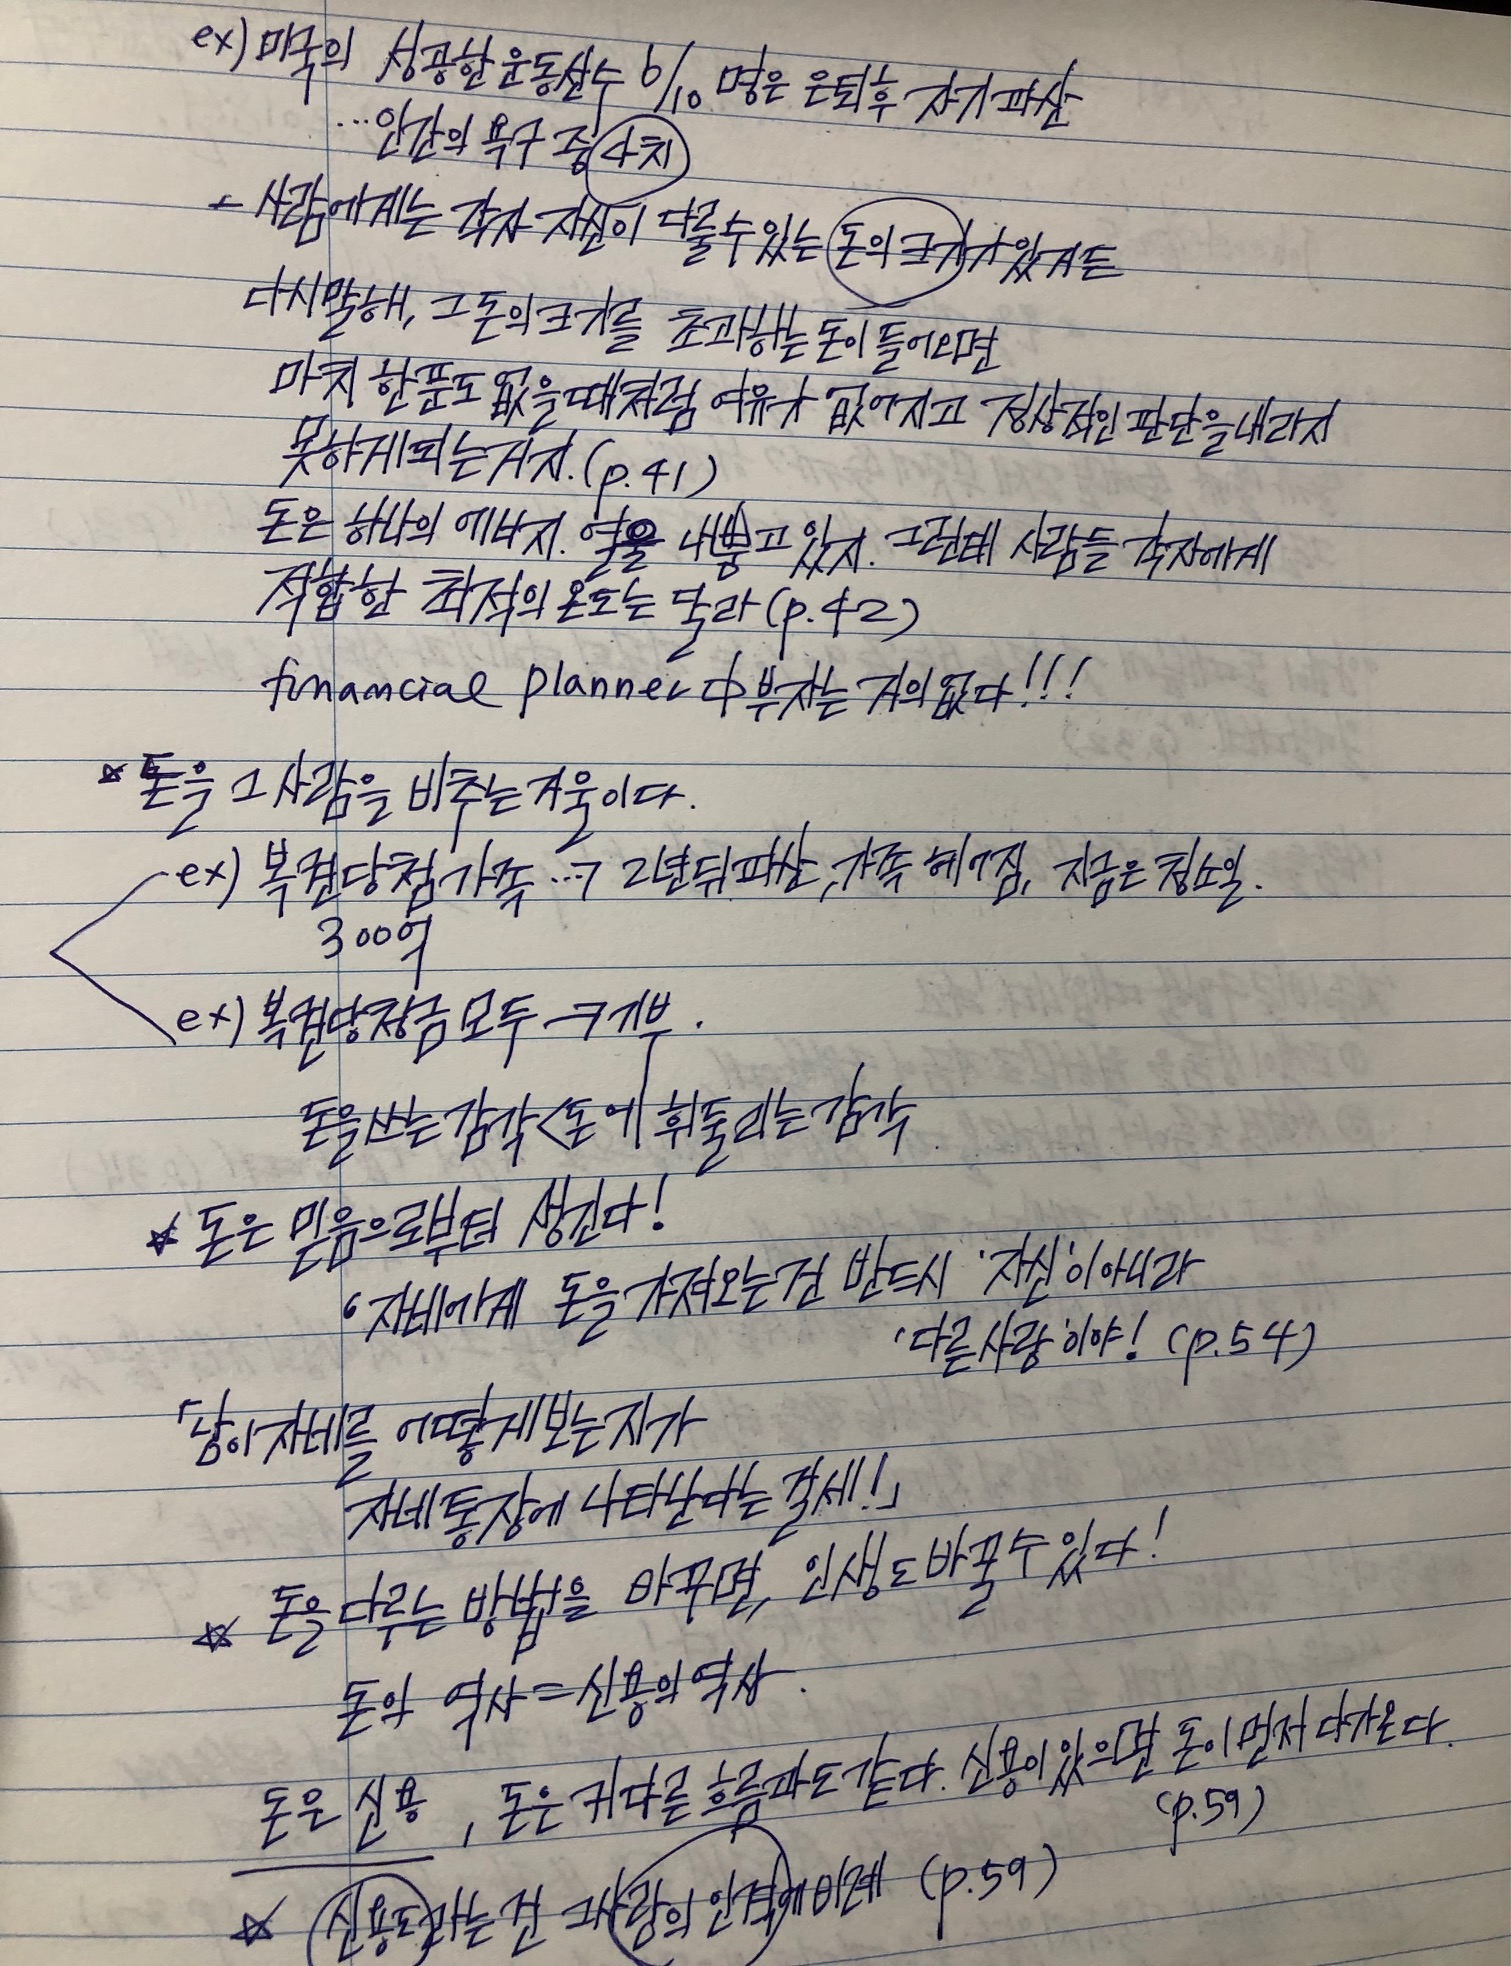 ex) 미국의 성공한 운동선수 6/10 명은 은퇴후 자기파산
…인간의 욕구 중 사치
- 사람에게는 각자 자신이 다룰수있는 돈의크기가 있거든
다시말해, 그돈의크기를 초과하는 돈이 들어오면
마치 한푼도 없을때처럼 여유가 없어지고 정상적인 판단을내리지
못하게되는거지. (p.41)
돈은 하나의 에너지. 열을 내뿜고 있지. 그런데 사람들 각자에게
적합한 최적의 온도는 달라 (p.42)
financial planner 中 부자는 거의없다!!!
☆ 돈을 그사람을 비추는 거울이다.
ex) 복권당첨가족 …→ 2년뒤파산, 가족 헤어짐, 지금은 청소일.
300억
ex) 복권당첨금모두 → 기부.
돈을쓰는감각<돈에 휘둘리는감각
☆ 돈은 믿음으로부터 생긴다!
'자네에게 돈을 가져오는건 반드시 '자신'이아니라
'다른사람'이야! (p.54)
「남이자네를 어떻게보는지가
자네통장에 나타난다는 걸세!」
☆ 돈을 다루는 방법을 바꾸면, 인생도바꿀수있다!
돈의 역사=신용의역사.
돈은 신용, 돈은커다른흐름과도같다. 신용이있으면 돈이먼저다가온다.
(p.59)
☆ 신용도라는건 그사람의 인격에비례 (p.59)